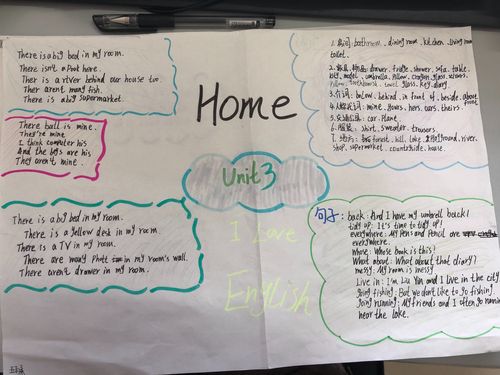 There is a big bed in my room.
There isn't a Pook here.
Ther is a river behind our house too.
Ther arent many fish.
There is a big supermarket.
There ball is mine.
They're mine.
I think computer his
And the bags are his
They aren't mine.
There is a big bed in my room.
There is a yellow desk in my room
There is a TV in my room.
There are many Photo in my room's wall.
There arent drawer in my room.
Home
Unit3
I Love
English
1. 房间: bathroom. dining room. kitchen. living room
toilet.
drawer. fridge. shower. sofa. table.
bed. model. umbrella. pillow. crayon. glass. scissors.
pillow. toothbrush. towel. glass. key. diary
3. 介词: below. behind. in front of. beside. above
4. mine. yours. hers. ours. theirs
5. 交通: car. plane.
6. 服装: shirt. sweater. trousers.
7. 地方: forest. hill. lake. playground. river.
shop. supermarket. countryside. house.
句子: back: And I have my umbrell back!
tidy up: It's time to tidy up!
everywhere: My pens and Pencil are
everywhere.
whose: Whose book is this?
What about: What about that diary?
messy: My room is messy
Live in: I'm Liu Yun and I live in the city
going fishing: But we don't like to go fishing.
going running: My friends and I often go running
near the lake.